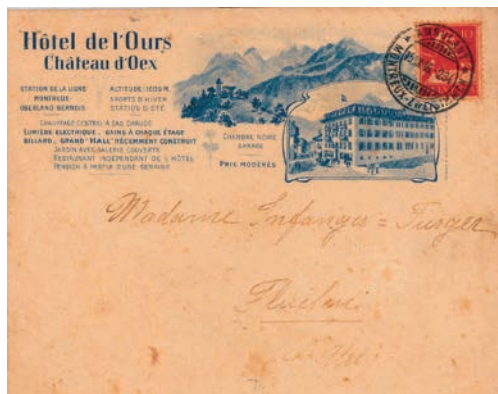 Hôtel de l'Ours
Château d'Oex
STATION DE LA LIGNE
MONTREUX-
OBERLAND BERNOIS
ALTITUDE: 1000 M.
SPORTS D'HIVER
STATION D'ÉTÉ
CHAUFFAGE CENTRAL À EAU CHAUDE
LUMIÈRE ELECTRIQUE . BAINS À CHAQUE ÉTAGE
BILLARD . GRAND "HALL" RÉCEMMENT CONSTRUIT
JARDIN AVEC GALERIE COUVERTE
RESTAURANT INDÉPENDANT DE L'HÔTEL
PENSION À PARTIR D'UNE SEMAINE
CHAMBRE NOIRE
GARAGE
PRIX MODÉRÉS
10
AMBULANT
MONTREUX-ZWEISIMMEN
Madame Infanger = Furger